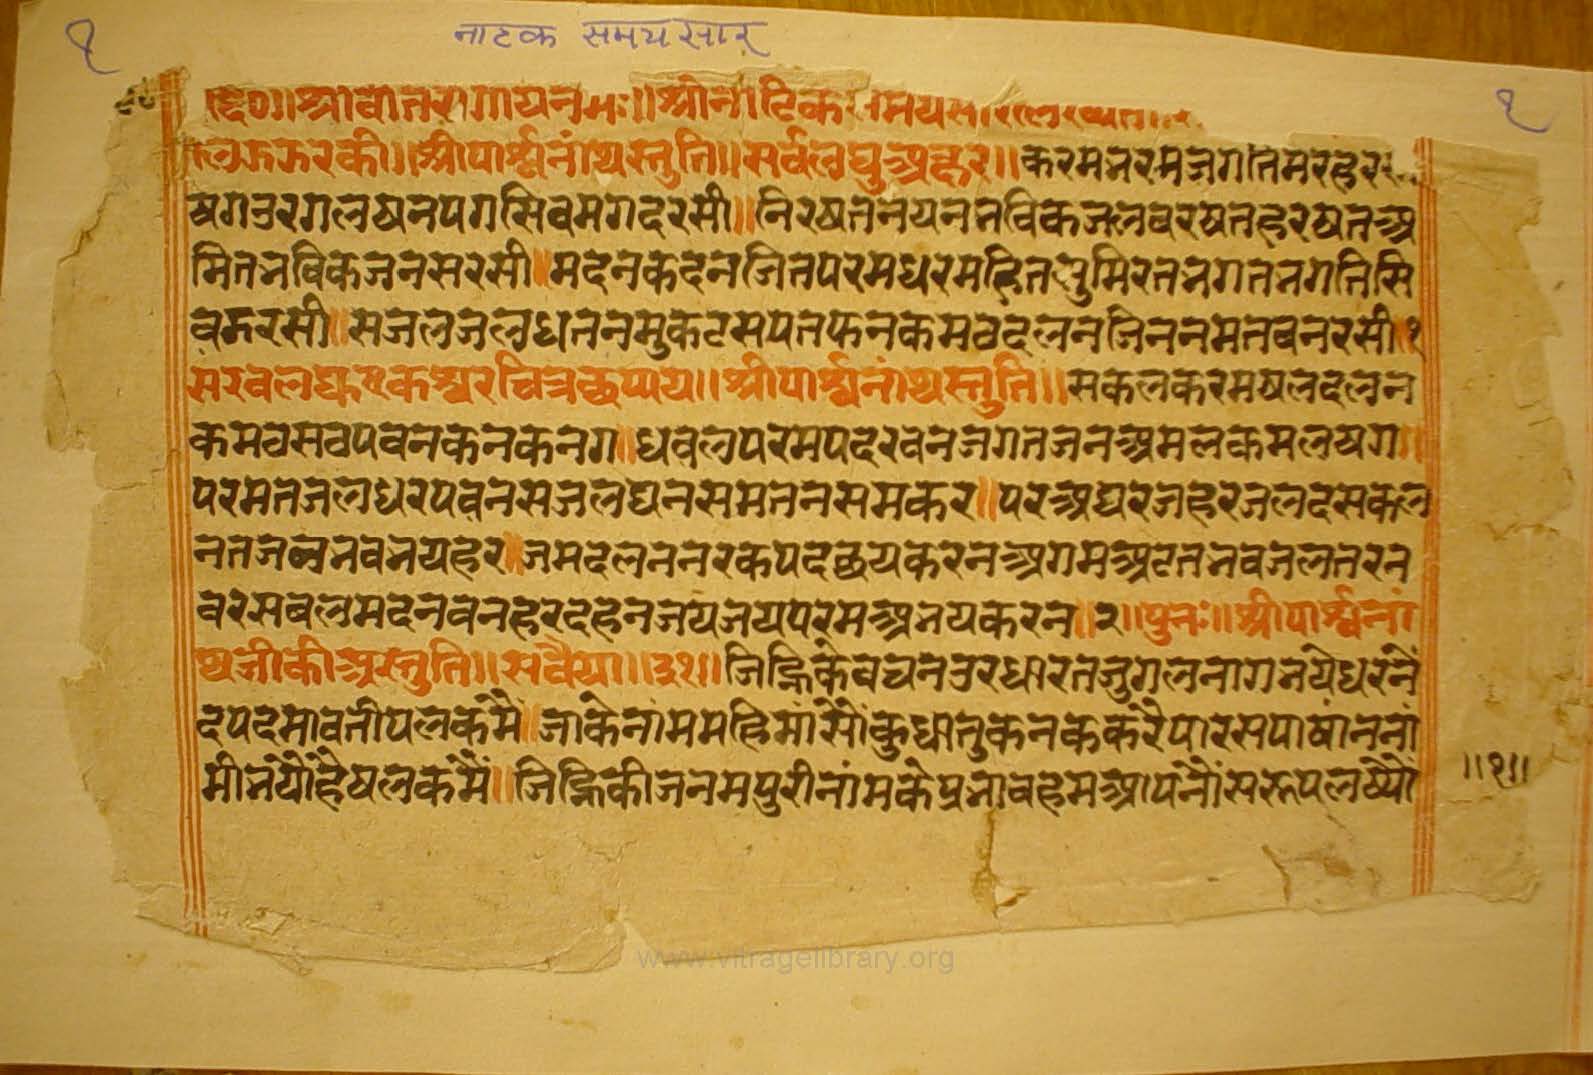 १ नाटक समयसार १
॥६०॥श्रीवीतरागायनमः॥श्रीनाटिक
ऊऊरकी॥श्रीपार्श्वनांथस्तुति॥सर्वलघुअक्षर॥करमभरमजगतिमरहर
षगउरगलषनपगसिवमगदरसी॥निरषतनयनभविकजलवरषतहरषतअ
मितभविकजनसरसी॥मदनकदनजितपरमधरमहितसुमिरतभगतभगतिसि
वऊरसी॥सजलजलधतनमुकटसपतफनकमठदलनजिननमतबनरसी॥१
चित्रछप्पय॥श्रीपार्श्वनांथस्तुति॥सकलकरमषलदलन
कमठसठपवनकनकनग॥धवलपरमपदरवनजगतजनअमलकमलषग॥
परमतजलधरपवनसजलघनसमतनसमकर॥परअघरजहरजलदसकल
नतजनभवभयहर॥जमदलननरकपदछयकरनअगमअटतभवजलतरन
वरसबलमदनवनहरदहनजयजयपरमअभयकरन॥२॥पुनः॥श्रीपार्श्वनां
थजीकीअस्तुति॥सवैया॥३१॥जिह्निकेवचनउरधारतजुगलनागभयेधरनें
दपदमावतीपलकमैं॥जाकेनांममहिमांसौंकुधातुकनककरैपारसपाषांननां
मीभयौहैषलकमैं॥जिह्निकीजनमपुरीनांमकेप्रभावहमआपनौंसरूपलष्यौ
॥१॥
www.vitragelibrary.org